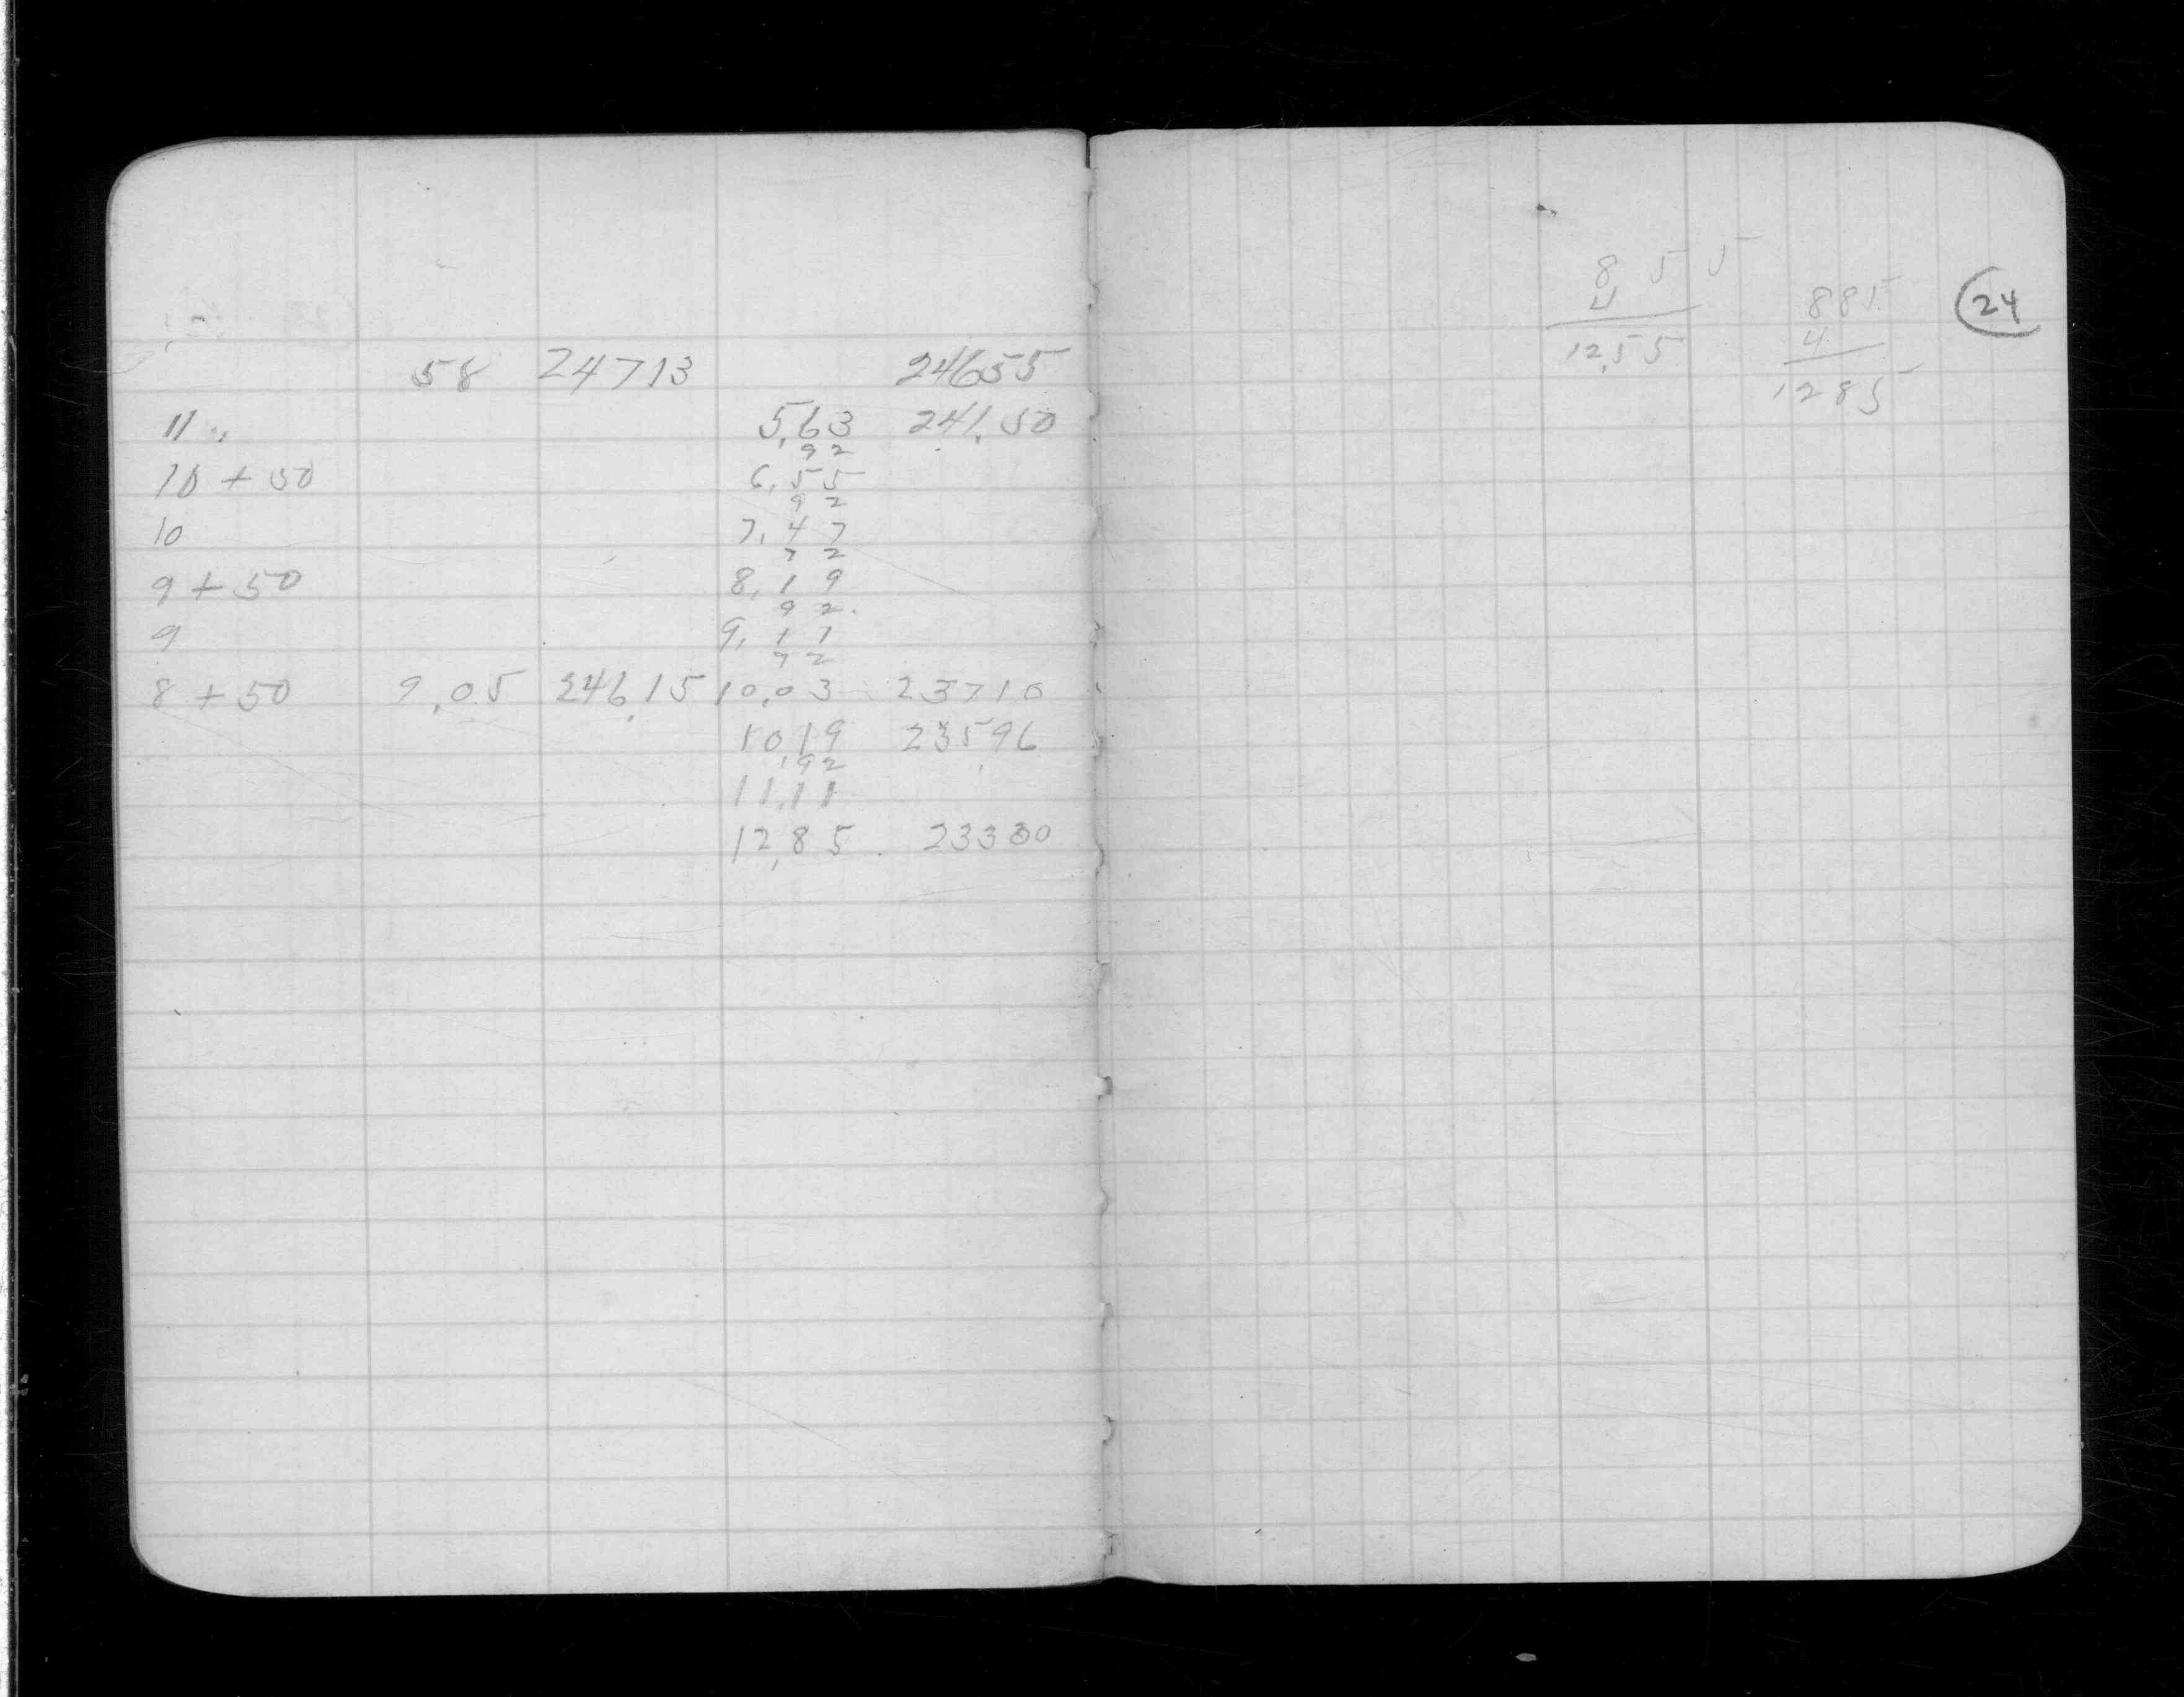 58 24713 24655
11 " 5,63 241,50
92
10 + 50 6,55
92
10 7,47
72
9 + 50 8,19
92
9 9,11
92
8 + 50 9,05 246,15 10,03 23710
10,19 23596
,92
11,11
12,85 23330
8 5 5
4
12,55
885
4
1285
24